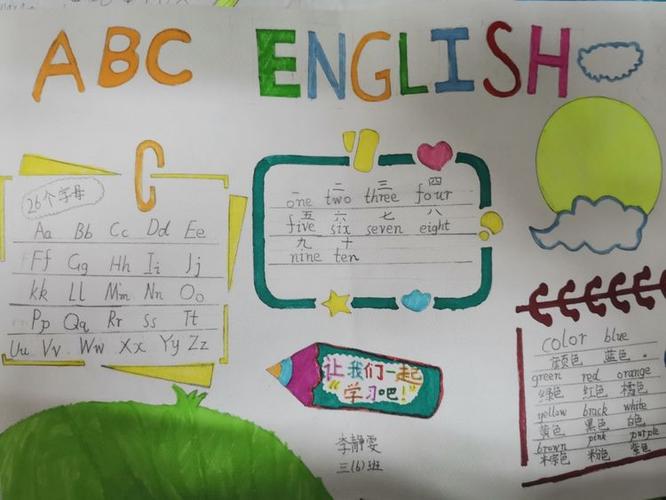 ABC ENGLISH
C
26个字母
Aa Bb Cc Dd Ee
Ff Gg Hh Ii Jj
kk Ll Mm Nn Oo
Pp Qq Rr Ss Tt
Uu Vv Ww Xx Yy Zz
一 二 三 四
one two three four
五 六 七 八
five six seven eight
九 十
nine ten
让我们一起
“学习吧!”
李静雯
三(6)班
color blue
颜色 蓝色
green red orange
绿色 红色 橘色
yellow brack white
黄色 黑色 白色
brown pink purple
棕色 粉色 紫色